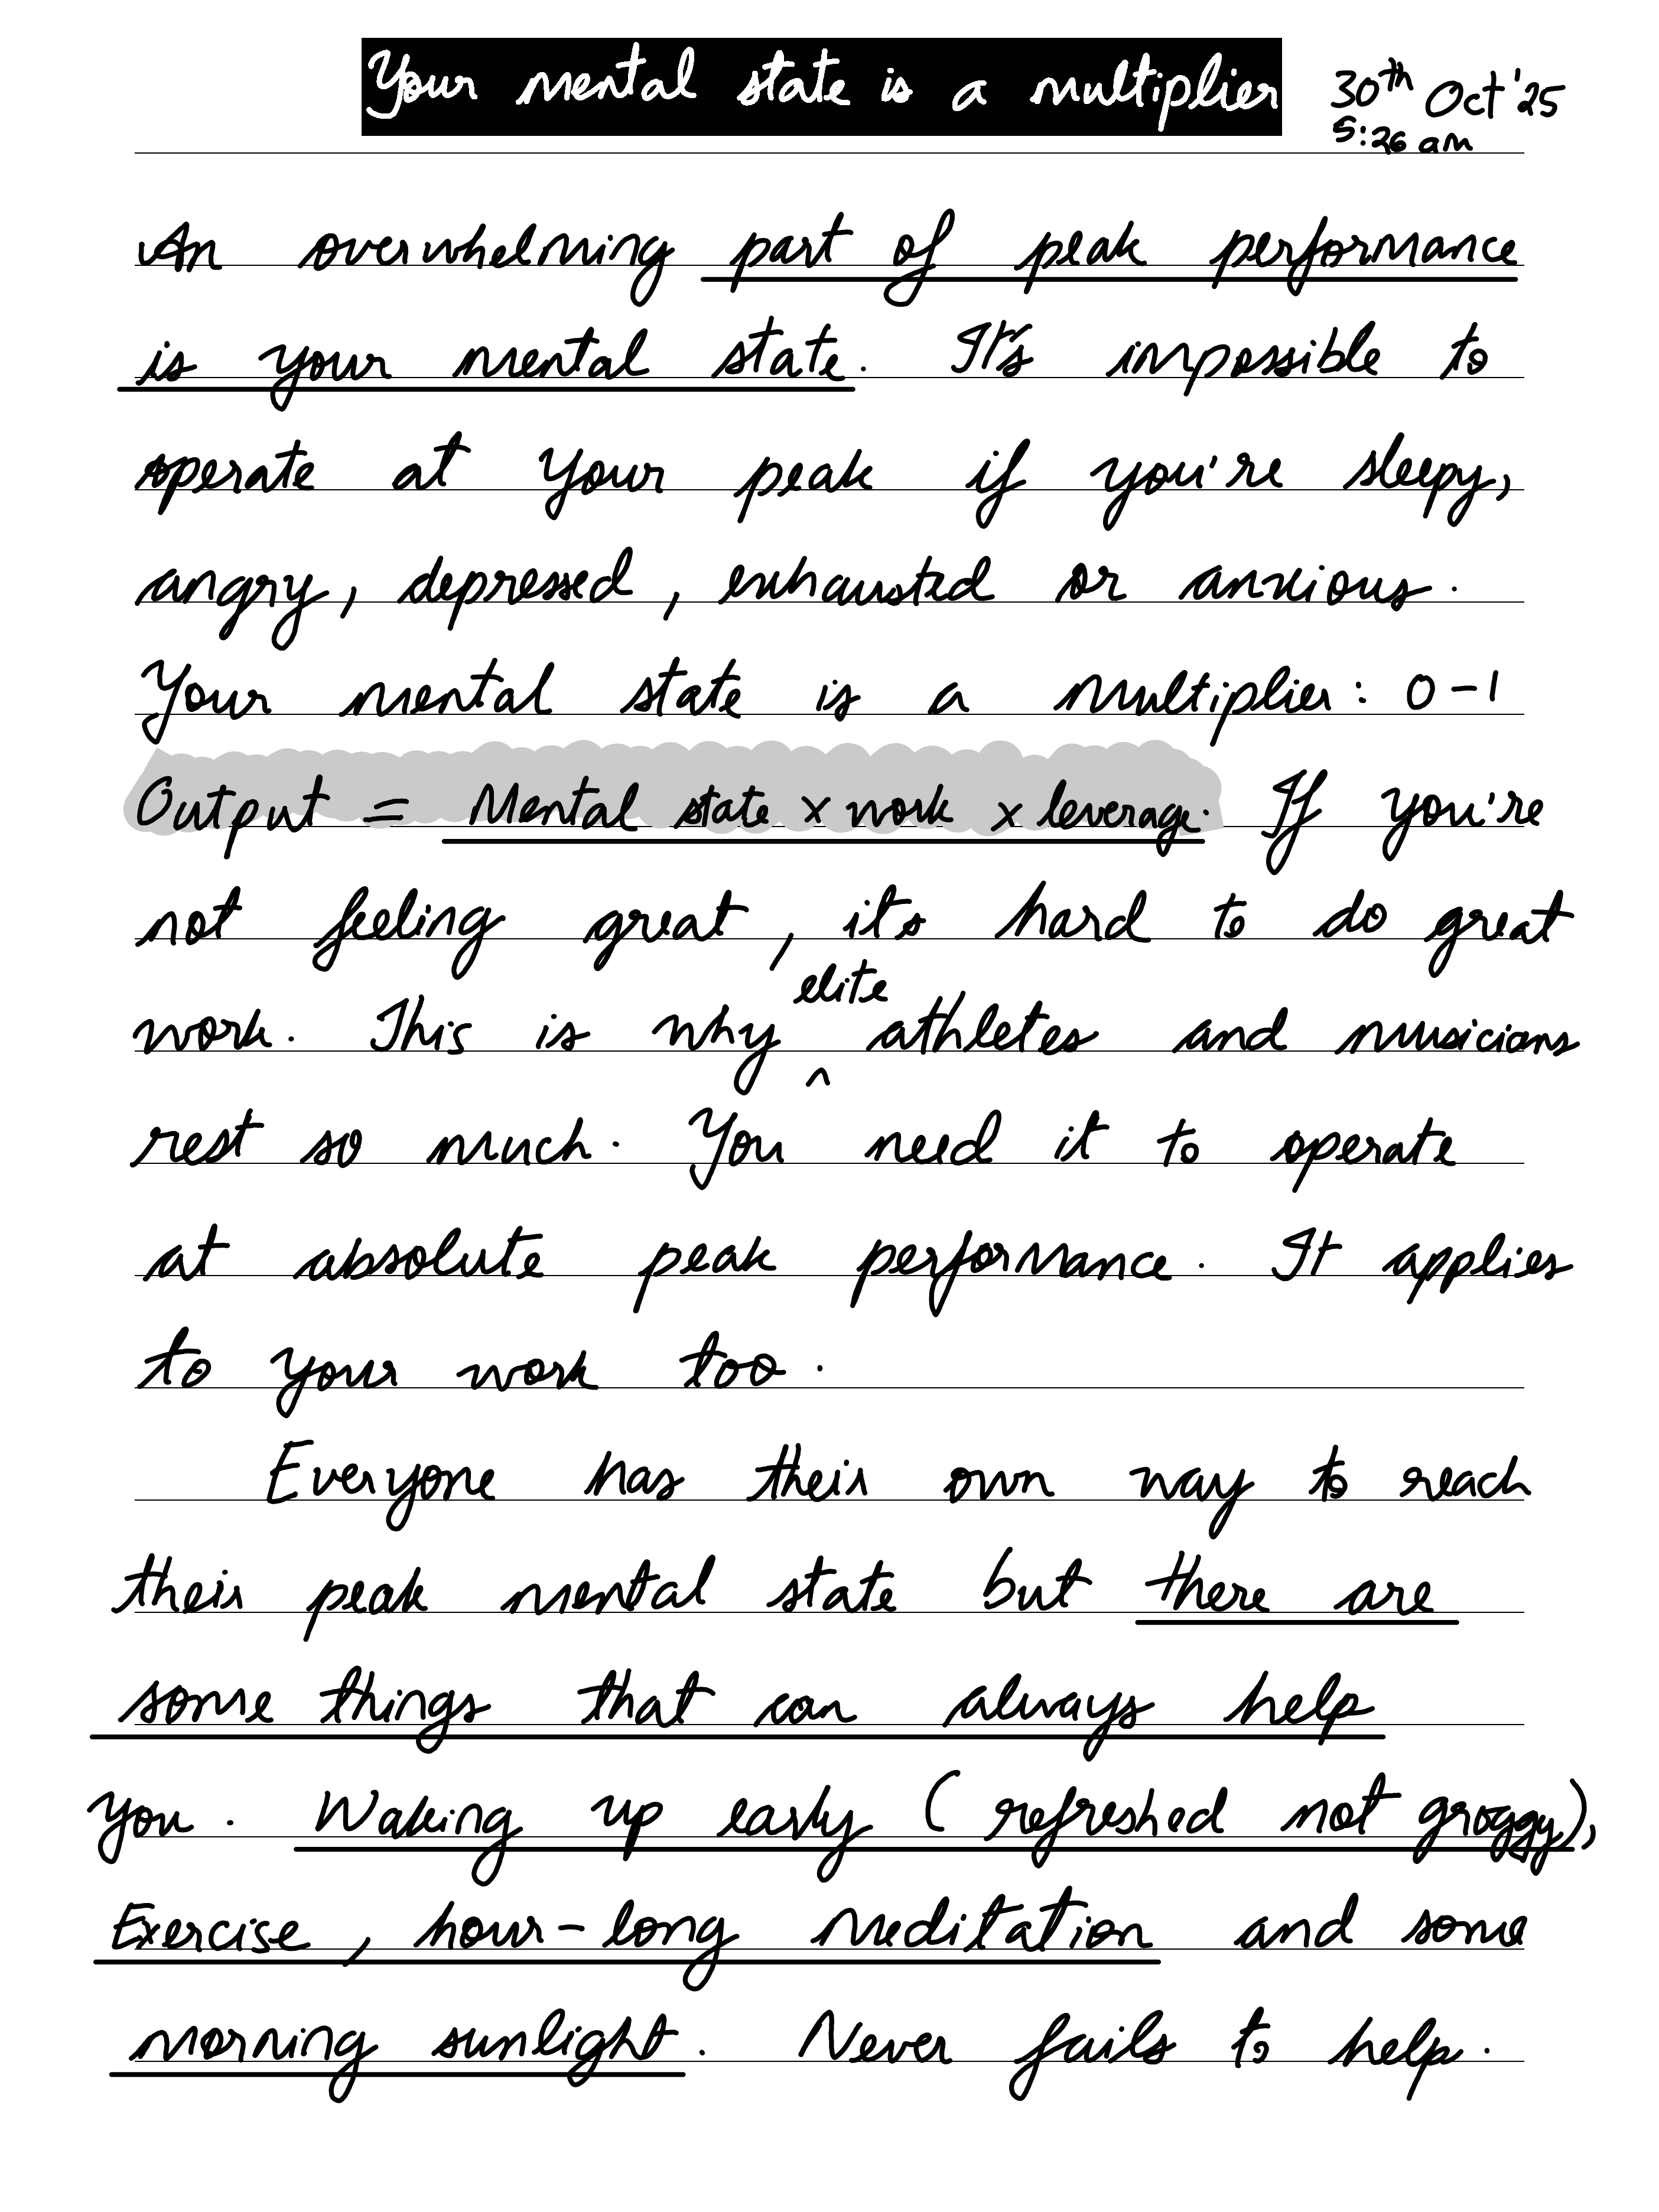 Your mental state is a multiplier
30th Oct '25
5:26 am
An overwhelming part of peak performance
is your mental state. It's impossible to
operate at your peak if you're sleepy,
angry, depressed, exhausted or anxious.
Your mental state is a multiplier: 0-1
Output = Mental state x work x leverage. If you're
not feeling great, it's hard to do great
work. This is why elite athletes and musicians
rest so much. You need it to operate
at absolute peak performance. It applies
to your work too.
Everyone has their own way to reach
their peak mental state but there are
some things that can always help
you. Waking up early (refreshed not groggy),
Exercise, hour-long meditation and some
morning sunlight. Never fails to help.